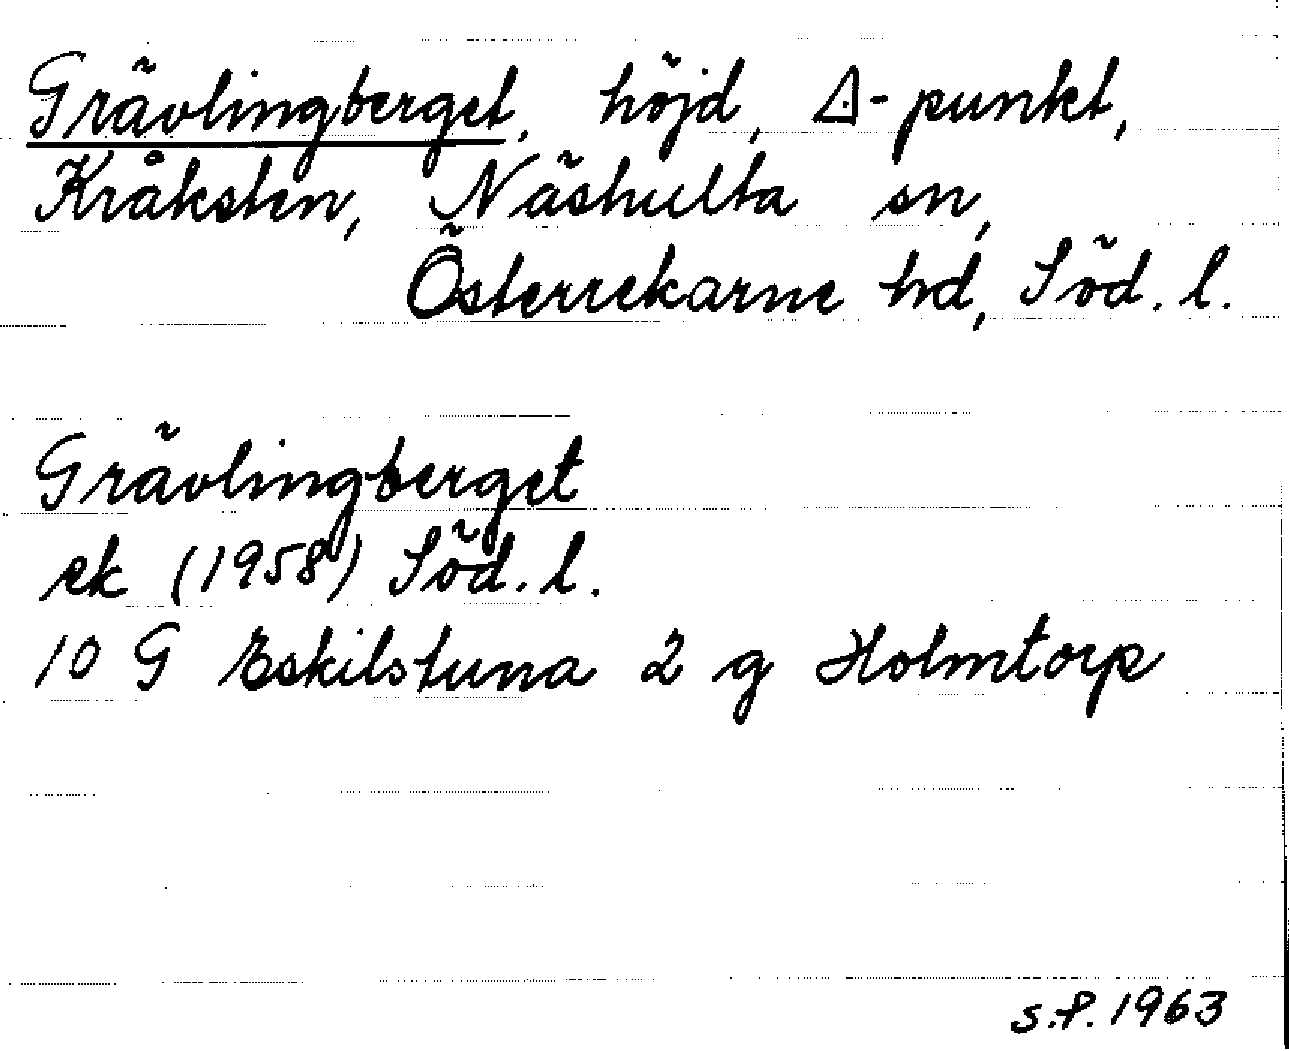 Grävlingberget, höjd, Δ-punkt,
Kråksten, Näshulta sn,
Österrekarne hd, Söd. l.
Grävlingberget
ek (1958) Söd. l.
10 G Eskilstuna 2 g Holmtorp
S.P. 1963